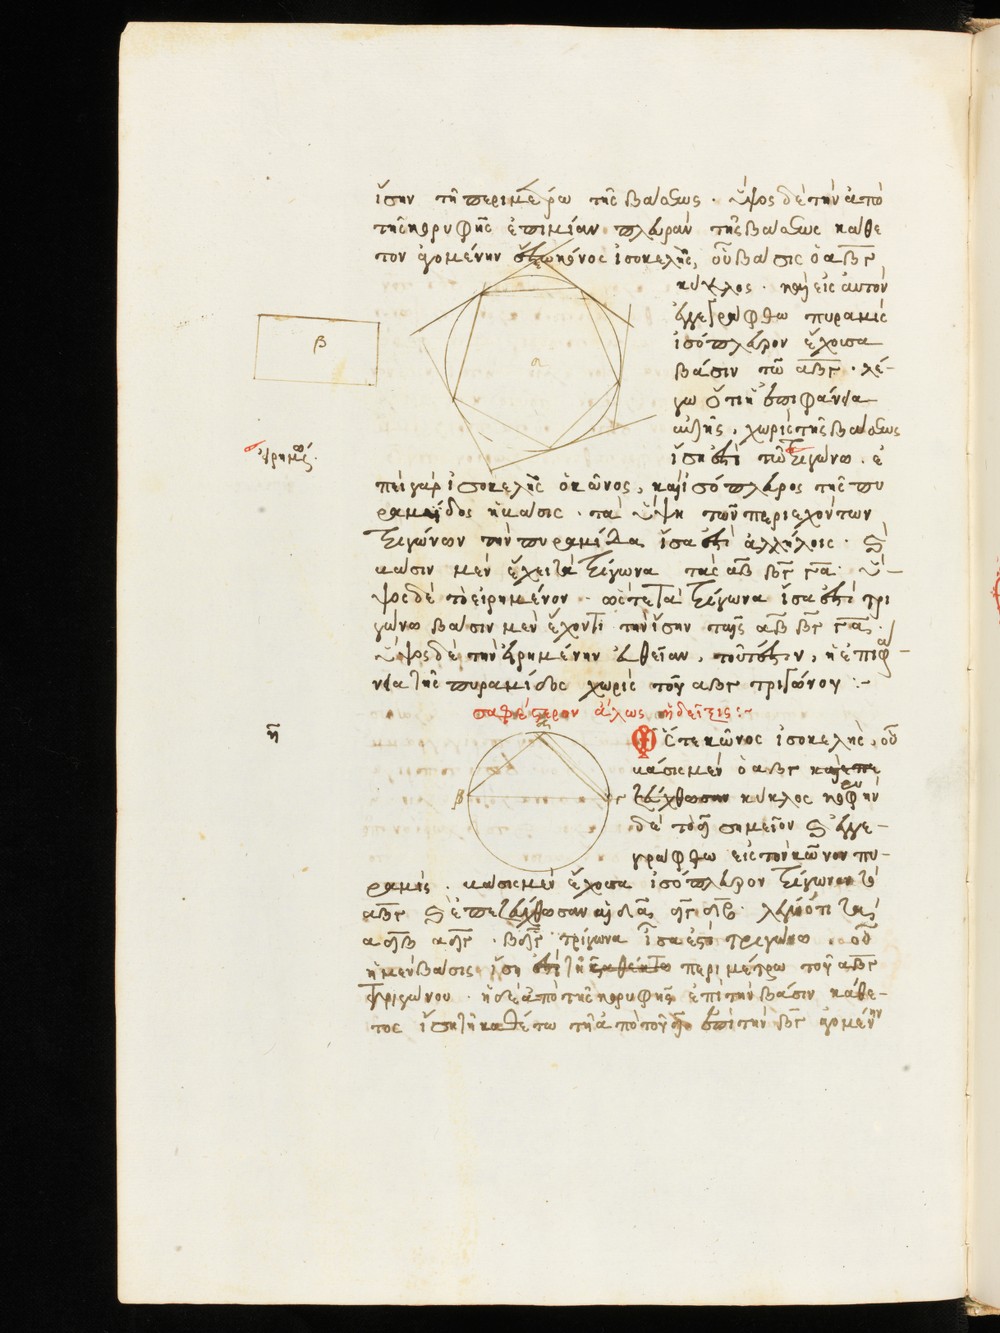 ἴσην τῇ περιμέτρῳ τῆς βάσεως · ὕψος δὲ τὴν ἀπὸ
τῆς κορυφῆς ἐπὶ μίαν πλευρὰν τῆς βάσεως κάθε
τον ἀγομένην ἔστω κῶνος ἰσοσκελής, οὗ βάσις ὁ αβγ
κύκλος · καὶ εἰς αὐτὸν
ἐγγεγράφθω πυραμὶς
ἰσόπλευρον ἔχουσα
βάσιν τὸ αβγ · λέ-
γω ὅτι ἡ ἐπιφάνεια
αὐτῆς, χωρὶς τῆς βάσεως
ἴση ἐστὶ τῷ τριγώνῳ · ἐ
β
α
εἰρημένῳ
πεὶ γὰρ ἰσοσκελὴς ὁ κῶνος, καὶ ἰσόπλευρος τῆς πυ
ραμίδος ἡ βάσις · τὰ ὕψη τῶν περιεχόντων
τριγώνων τὴν πυραμίδα ἴσα ἐστὶ ἀλλήλοις ·
βάσιν μὲν ἔχει τὰ τρίγωνα τὰς αβ βγ γα · ὕ-
ψος δὲ τὸ εἰρημένον · ὥστε τὰ τρίγωνα ἴσα ἐστὶ τρι
γώνῳ βάσιν μὲν ἔχοντι τὴν ἴσην ταῖς αβ βγ γα ·
ὕψος δὲ τὴν εἰρημένην εὐθεῖαν, τουτέστιν, ἡ ἐπιφά-
νεια τῆς πυραμίδος χωρὶς τοῦ αβγ τριγώνου :-
σαφέστερον ἄλλως ἡ δεῖξις :-
η
β
γ
Ἔστω κῶνος ἰσοσκελής, οὗ
βάσις μὲν ὁ αβγ καὶ ἐπε
ζεύχθωσαν κύκλος κορυφὴν
δὲ τὸ η σημεῖον καὶ ἐγγε-
γράφθω εἰς τὸν κῶνον πυ-
ραμὶς · βάσις μὲν ἔχουσα ἰσόπλευρον τρίγωνον τὸ
αβγ καὶ ἐπεζεύχθωσαν αἱ ηα ηγ ηβ · λέγω ὅτι τὰ
αηβ αηγ · βηγ τρίγωνα ἴσα ἐστὶ τριγώνῳ · οὗ
ἡ μὲν βάσις ἴση ἐστὶ τῇ καθέτῳ περιμέτρῳ τοῦ αβγ
τριγώνου · ἡ δὲ ἀπὸ τῆς κορυφῆς ἐπὶ τὴν βάσιν κάθε-
τος ἴση τῇ καθέτῳ τῇ ἀπὸ τοῦ η ἐπὶ τὴν βγ ἀγομένην